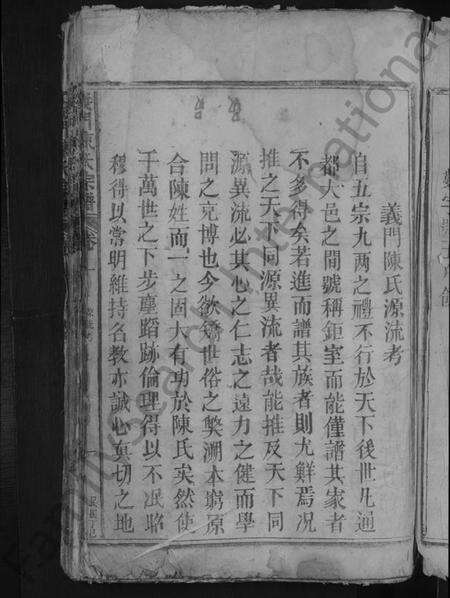 義門陳氏源流考
自五宗九两之禮不行於天下後世凡通
都大邑之間號稱鉅室而能僅譜其家者
不多得矣若進而譜其族者則尤鮮焉况
推之天下同源異流者哉能推及天下同
源異流必其心之仁志之遠力之健而學
問之克博也今欲矯世俗之獘溯本窮原
合陳姓而一之固大有功於陳氏矣然使
千萬世之下步塵蹈跡倫理得以不泯昭
穆得以常明維持名教亦誠心真切之地
陳氏宗譜
FamilySearch International